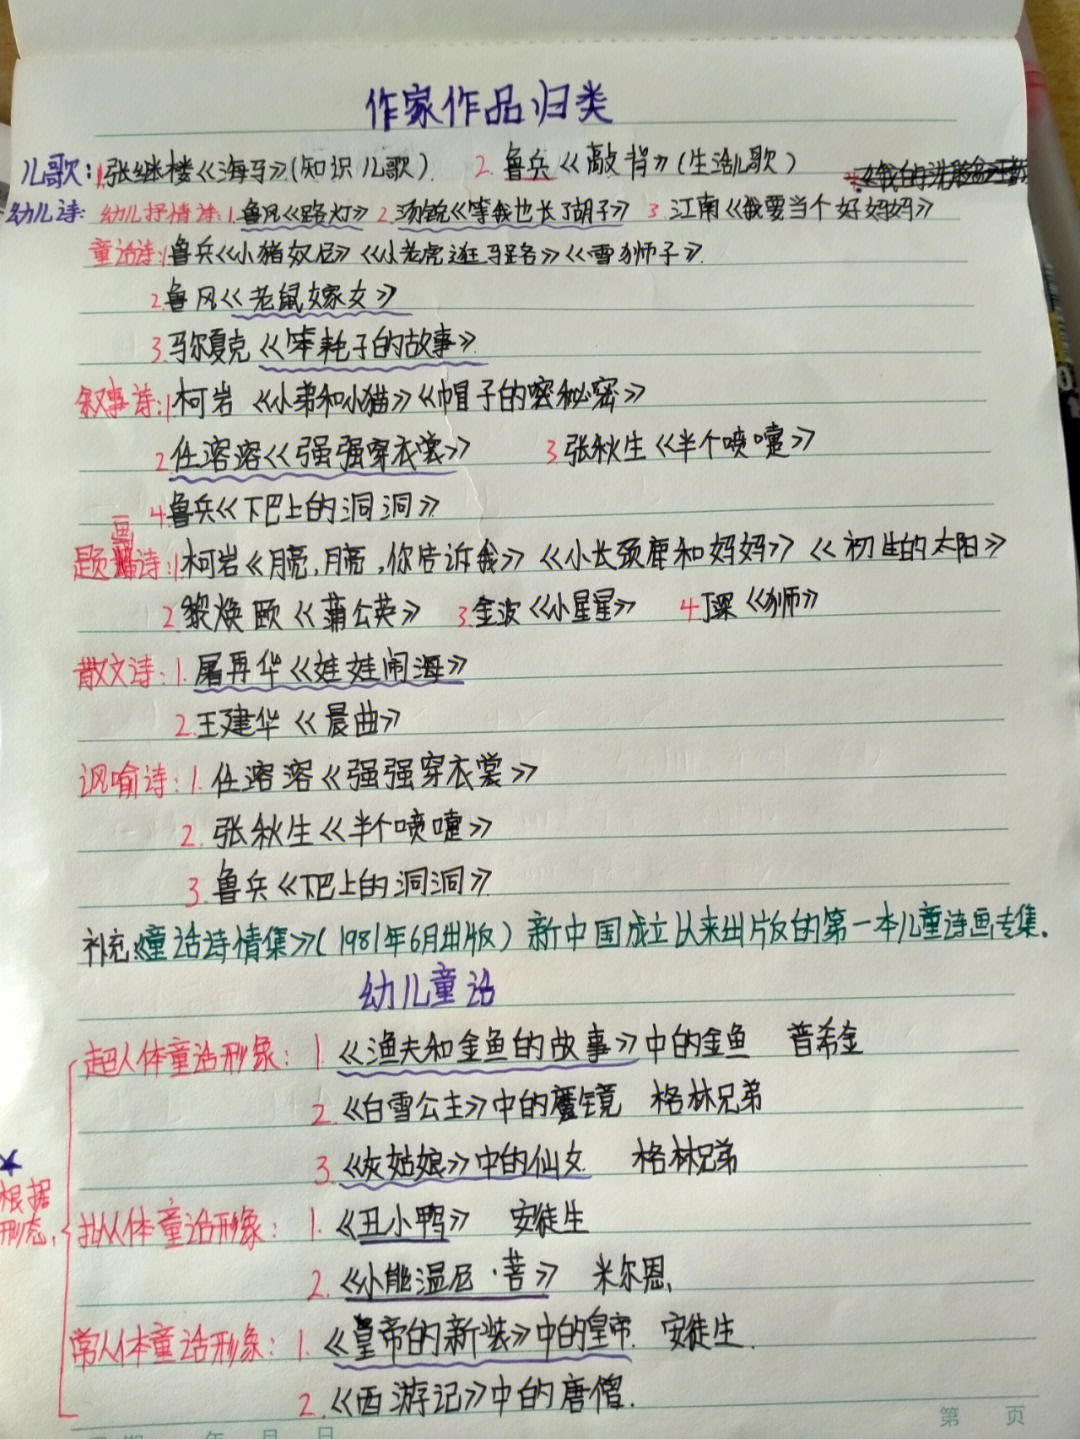 作家作品归类
儿歌:1.张继楼《海马》(知识儿歌) 2.鲁兵《敲背》(生活儿歌)
幼儿诗: 幼儿抒情诗:1.鲁风《路灯》 2.汤锐《等我也长了胡子》 3.江南《我要当个好妈妈》
童话诗:1鲁兵《小猪奴尼》《小老虎逛马路》《雪狮子》.
2.鲁风《老鼠嫁女》
3.马尔夏克《笨耗子的故事》.
叙事诗:1柯岩《小弟和小猫》《帽子的秘密》
2.任溶溶《强强穿衣裳》 3张秋生《半个喷嚏》
4.鲁兵《下巴上的洞洞》.
题画诗:1柯岩《月亮,月亮,你告诉我》《小长颈鹿和妈妈》《初生的太阳》
2.黎焕颐《蒲公英》 3.金波《小星星》 4丁深《狮》
散文诗:1.屠再华《娃娃闹海》
2.王建华《晨曲》
讽喻诗:1.任溶溶《强强穿衣裳》
2.张秋生《半个喷嚏》
3.鲁兵《下巴上的洞洞》
补充《童话诗情集》(1981年6月出版)新中国成立以来出版的第一本儿童诗画专集.
幼儿童话
超人体童话形象: 1.《渔夫和金鱼的故事》中的金鱼 普希金
2.《白雪公主》中的魔镜 格林兄弟
3.《灰姑娘》中的仙女. 格林兄弟
★根据形态,
拟人体童话形象: 1.《丑小鸭》 安徒生
2.《小熊温尼·菩》 米尔恩,
常人体童话形象: 1.《皇帝的新装》中的皇帝. 安徒生.
2.《西游记》中的唐僧.
年 月 日
第 页